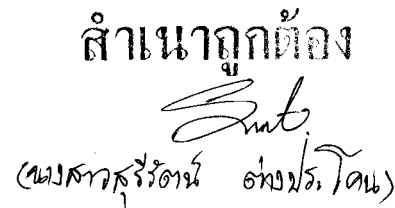 สำเนาถูกต้อง
(นางสาวสุรีรัตน์ ต่างประโคน)